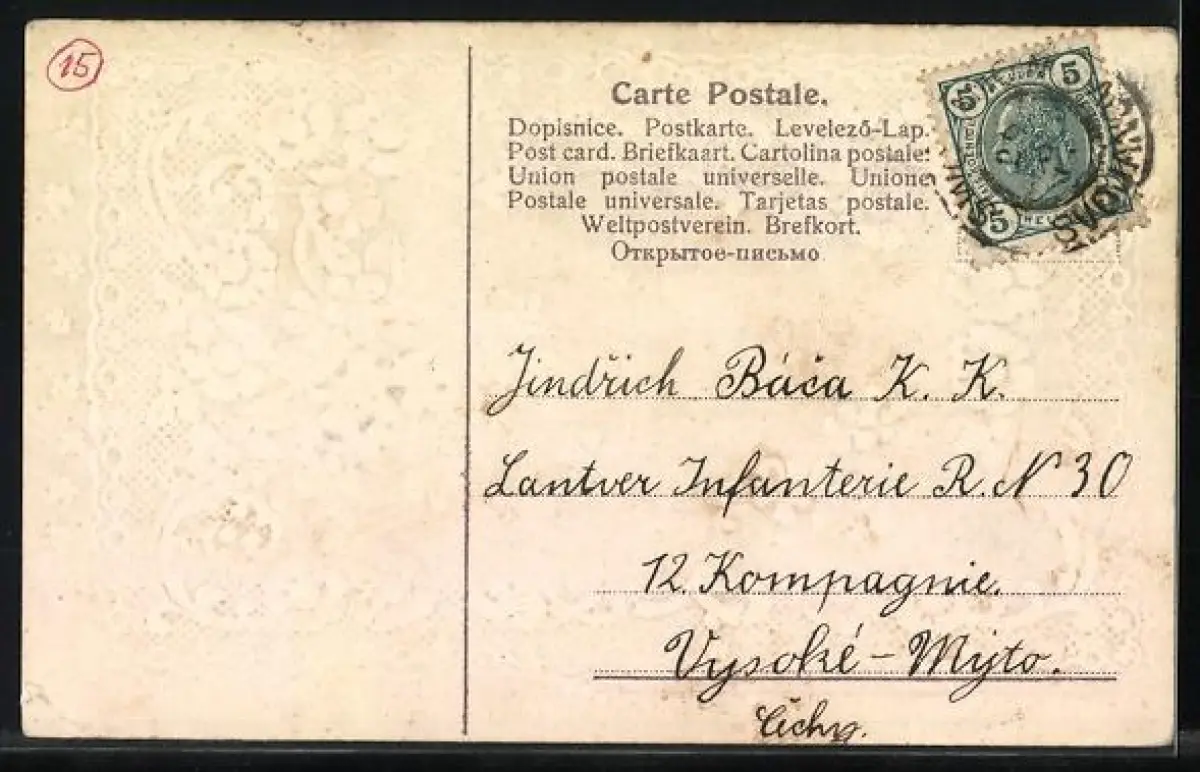 15
Carte Postale.
Dopisnice. Postkarte. Levelező-Lap.
Post card. Briefkaart. Cartolina postale:
Union postale universelle. Unione
Postale universale. Tarjetas postale.
Weltpostverein. Brefkort.
Открытое-письмо
5 5
5
Jindřich Báča K. K.
Lantver Infanterie R. N 30
12. Kompagnie.
Vysoké-Mýto.
Čechy.